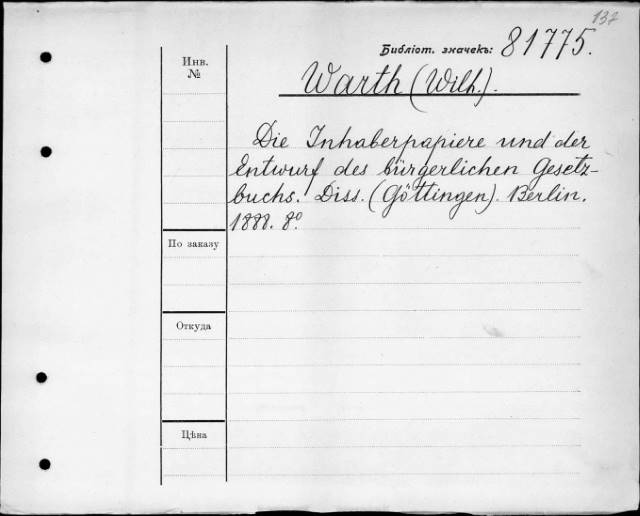 137
Библіот. значекъ: 81775.
Инв.
№
Warth (Wilh.).
Die Inhaberpapiere und der
Entwurf des bürgerlichen Gesetz-
buchs. Diss. (Göttingen). Berlin.
1888. 8º.
По заказу
Откуда
Цѣна